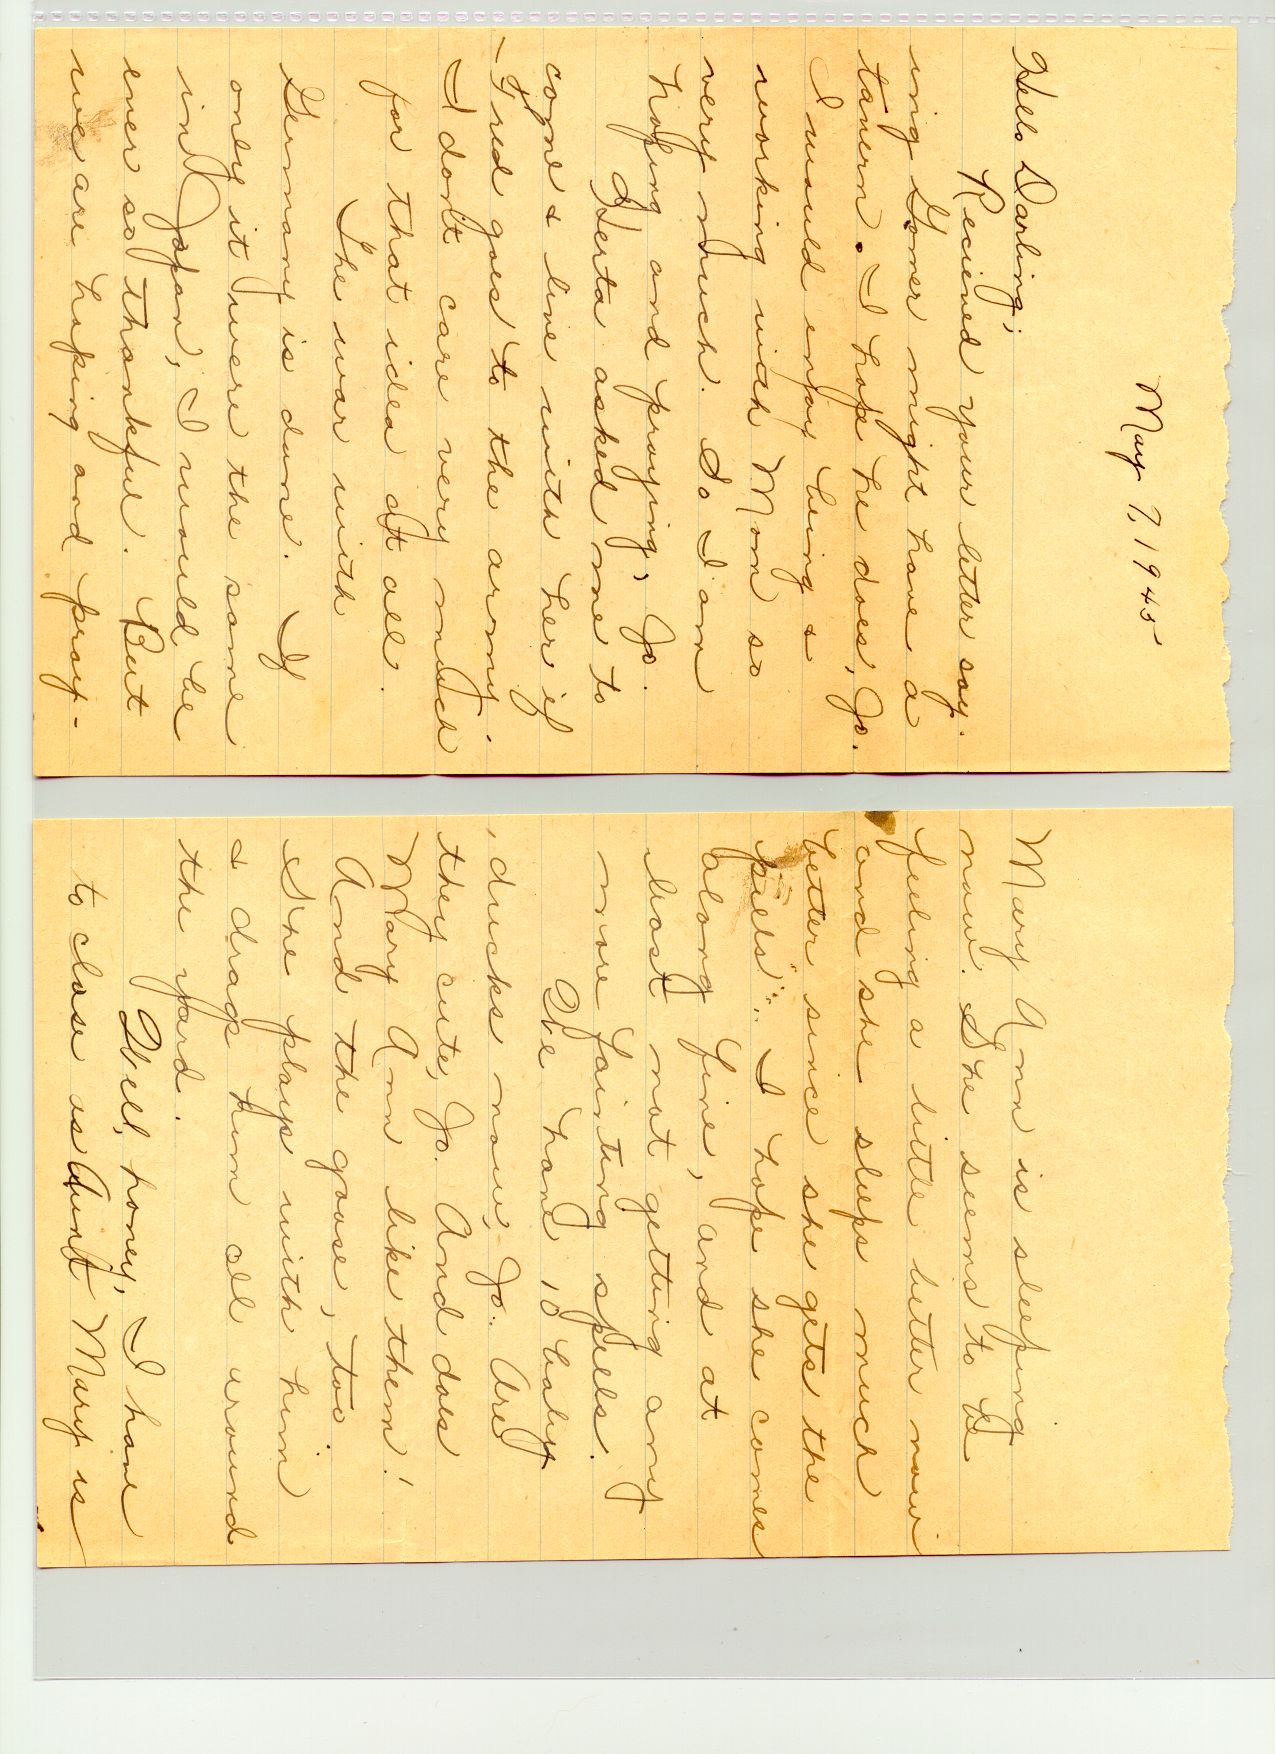 May 7, 1945
Hello Darling;
Recieved your letter say-
ing Gomer might have a
tavern. I hope he does, Jo.
I would enjoy being &
working with Mom so
very much. So I am
hoping and praying, Jo.
Herta asked me to
come & live with her if
Fred goes to the army.
I don't care very much
for that idea at all.
The war with
Germany is done. If
only it were the same
in Japan, I would be
ever so thankful. But
we are hoping and pray-
Mary Ann is sleeping
now. She seems to be
feeling a little better now
and she sleeps much
better since she gets the
"pills". I hope she comes
along fine, and at
least not getting any
more fainting spells.
We have 10 baby
ducks now, Jo. Are
they cute, Jo. And does
Mary Ann like them!
And the goose, too.
She plays with him
& drags him all around
the yard.
Well, honey, I have
to close as Aunt Mary is